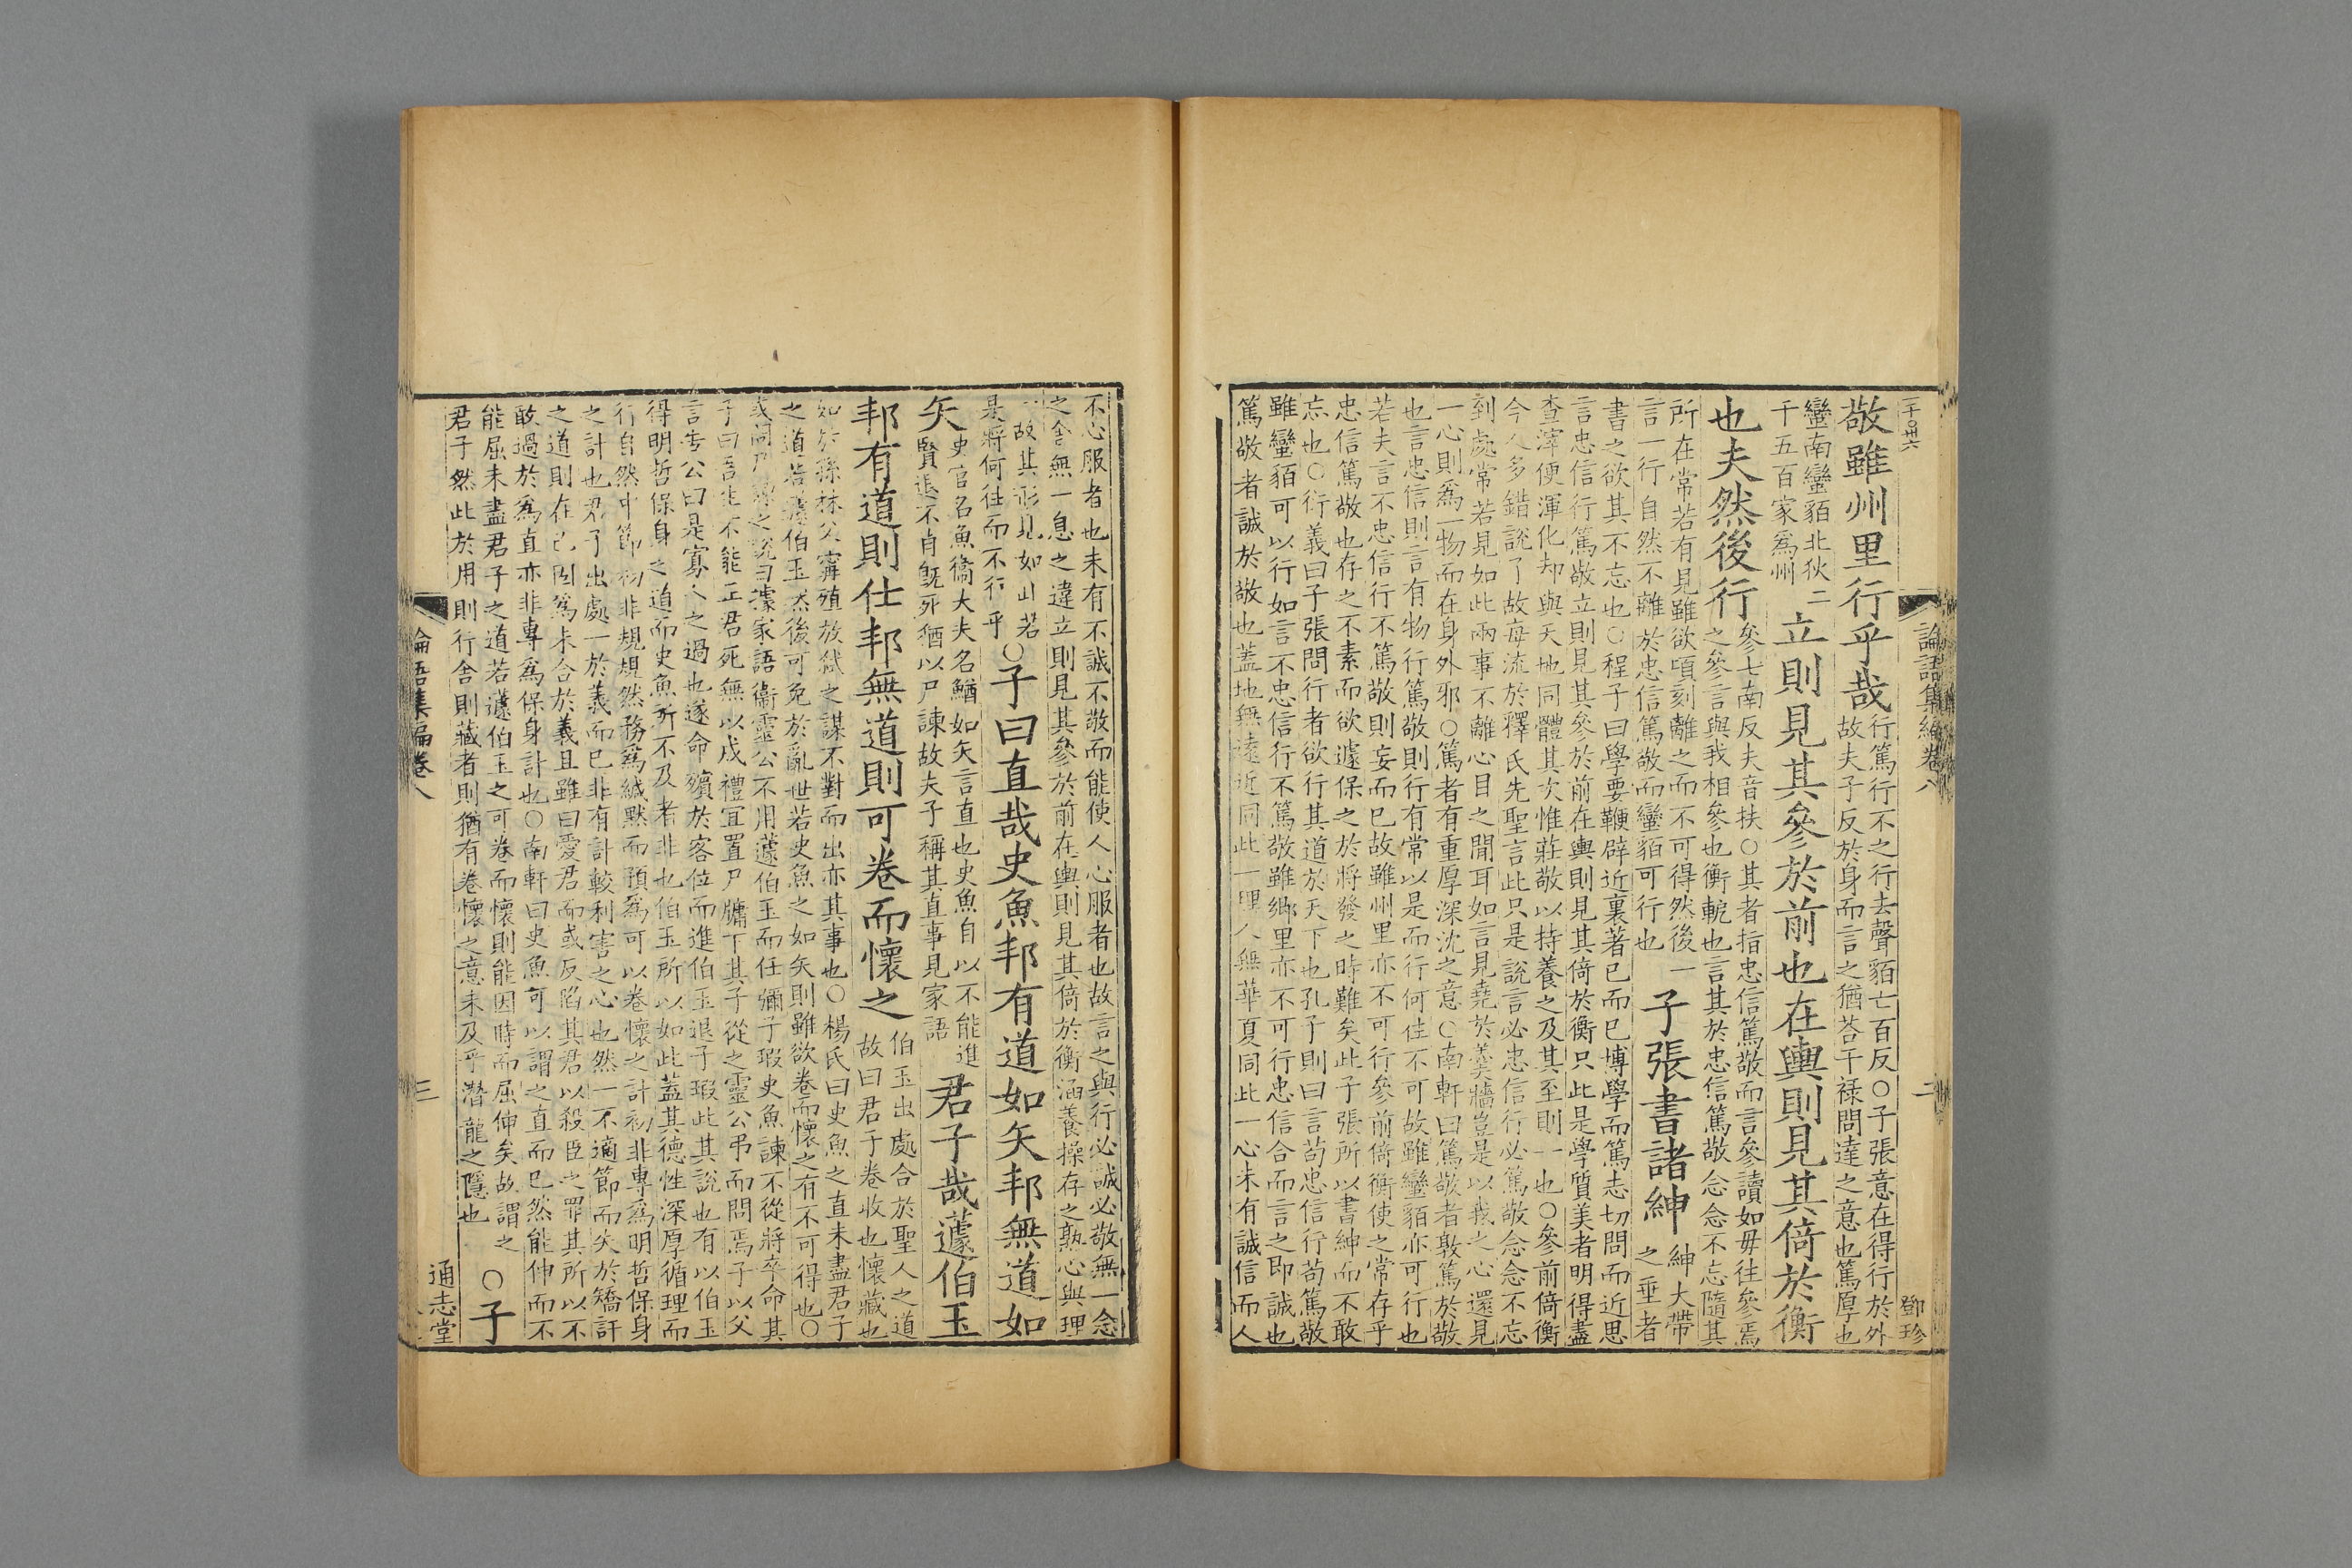 論語集編卷八
二
鄧珍
敬雖州里行乎哉
行篤行不之行去聲貊亡百反○子張意在得行於外
故夫子反於身而言之猶荅干祿問達之意也篤厚也
蠻南蠻貊北狄二
千五百家爲州
立則見其參於前也在輿則見其倚於衡
也夫然後行
參七南反夫音扶○其者指忠信篤敬而言參讀如毋往參焉
之參言與我相參也衡軛也言其於忠信篤敬念念不忘隨其
所在常若有見雖欲頃刻離之而不可得然後一
言一行自然不離於忠信篤敬而蠻貊可行也
子張書諸紳
紳大帶
之垂者
書之欲其不忘也○程子曰學要鞭辟近裏著已而已博學而篤志切問而近思
言忠信行篤敬立則見其參於前在輿則見其倚於衡只此是學質美者明得盡
查滓便渾化却與天地同體其次惟莊敬以持養之及其至則一也○參前倚衡
今人多錯說了故每流於釋氏先聖言此只是說言必忠信行必篤敬念念不忘
到處常若見如此兩事不離心目之間耳如言見堯於羹牆豈是以我之心還見
一心則爲一物而在身外邪○篤者有重厚深沈之意○南軒曰篤敬者敦篤於敬
也言忠信則言有物行篤敬則行有常以是而行何往不可故雖蠻貊亦可行也
若夫言不忠信行不篤敬則妄而已故雖州里亦不可行參前倚衡使之常存乎
忠信篤敬也存之不素而欲遽保之於將發之時難矣此子張所以書紳而不敢
忘也○衍義曰子張問行者欲行其道於天下也孔子則曰言苟忠信行苟篤敬
雖蠻貊可以行如言不忠信行不篤敬雖鄉里亦不可行忠信合而言之即誠也
篤敬者誠於敬也蓋地無遠近同此一理人無華夏同此一心未有誠信而人
不心服者也未有不誠不敬而能使人心服者也故言之與行必誠必敬無一念
之舍無一息之違立則見其參於前在輿則見其倚於衡涵養操存之熟心與理
一故其形見如此若
是將何往而不行乎
○子曰直哉史魚邦有道如矢邦無道如
矢
史官名魚衞大夫名鰌如矢言直也史魚自以不能進
賢退不肖旣死猶以尸諫故夫子稱其直事見家語
君子哉蘧伯玉
邦有道則仕邦無道則可卷而懷之
伯玉出處合於聖人之道
故曰君子卷收也懷藏也
如於孫林父甯殖放弒之謀不對而出亦其事也○楊氏曰史魚之直未盡君子
之道若蘧伯玉然後可免於亂世若史魚之如矢則雖欲卷而懷之有不可得也○
或問尸諫之說曰據家語衞靈公不用蘧伯玉而任彌子瑕史魚諫不從將卒命其
子曰吾生不能正君死無以成禮宜置尸牖下其子從之靈公弔而問焉子以父
言告公曰是寡人之過也遂命殯於客位而進伯玉退子瑕此其說也有以伯玉
得明哲保身之道而史魚所不及者非也伯玉所以如此蓋其德性深厚循理而
行自然中節初非規規然務爲緘默而預爲可以卷懷之計初非專爲明哲保身
之計也君子出處一於義而已非有計較利害之心也然一不適節而失於矯訐
之道則在己固爲未合於義且雖曰愛君而或反陷其君以殺臣之罪其所以不
敢過於爲直亦非專爲保身計也○南軒曰史魚可以謂之直而已然能伸而不
能屈未盡君子之道若蘧伯玉之可卷而懷則能因時而屈伸矣故謂之
君子然此於用則行舍則藏者則猶有卷懷之意未及乎潛龍之隱也
○子
論語集編卷八
三
通志堂